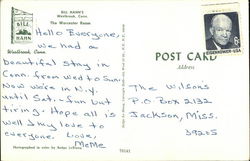 BILL HAHN'S
Westbrook, Conn.
The Worcester House
BILL
HAHN
Westbrook, Conn.
Hello Everyone,
We had a
beautiful stay in
Conn. from wed to Sun.
Now we're in N.Y.
until Sat. - fun but
tiring. Hope all is
well. My love to
everyone. Love,
MeMe
POST CARD
Address
EISENHOWER·USA
The Wilsons
P.O. Box 2132
Jackson, Miss.
39205
70141